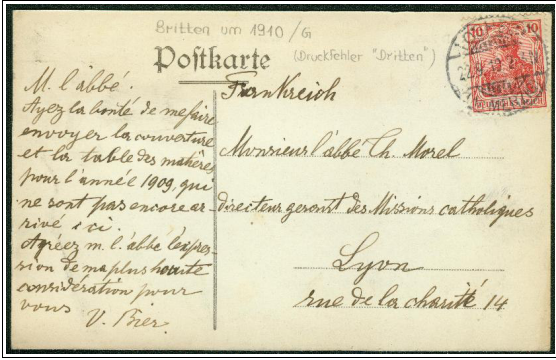 Britten um 1910/G
Postkarte (Druckfehler "Dritten")
M. l'abbé.
Ayez la bonté de me faire
envoyer la couverture
et la table des matières
pour l'année 1909, qui
ne sont pas encore ar-
rivé ici.
Agréez m. l'abbé l'expres-
sion de ma plus haute
consideration pour
vous
Frankreich
Monsieur l'abbé Th. Morel
directeur geront des Missions catholiques
Lyon
rue de la charité 14
10 10